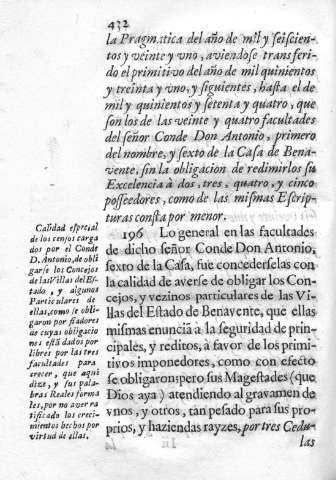 432
la Pragmatica del año de mil y seiscien-
tos y veinte y vno, aviendose transferi-
do el primitivo del año de mil quinientos
y treinta y vno, y siguientes, hasta el de
mil y quinientos y setenta y quatro, que
son los de las veinte y quatro facultades
del señor Conde Don Antonio, primero
del nombre, y sexto de la Casa de Bena-
vente, sin la obligacion de redimirlos su
Excelencia à dos, tres, quatro, y cinco
posseedores, como de las mismas Escrip-
turas consta por menor.
196 Lo general en las facultades
de dicho señor Conde Don Antonio,
sexto de la Casa, fue concederselas con
la calidad de averse de obligar los Con-
cejos, y vezinos particulares de las Vi-
llas del Estado de Benavente, que ellas
mismas enuncià à la seguridad de prin-
cipales, y reditos, à favor de los primi-
tivos imponedores, como con efecto
se obligaron: pero sus Magestades (que
Dios aya) atendiendo al gravamen de
vnos, y otros, tan pesado para sus pro-
prios, y haziendas rayzes, por tres Cedu-
las
Calidad especial
de los censos carga
dos por el Conde
D. Antonio, de obli
garse los Concejos
de las Villas del Es-
tado, y algunos
Particulares de
ellas, como se obli
garon por fiadores
de cuyas obligacio
nes està dados por
libres por las tres
facultades para
crecer, que aqui
dize, y sus pala-
bras Reales forma
les, por no aver ra
tificado los creci-
mientos hechos por
virtud de ellas.